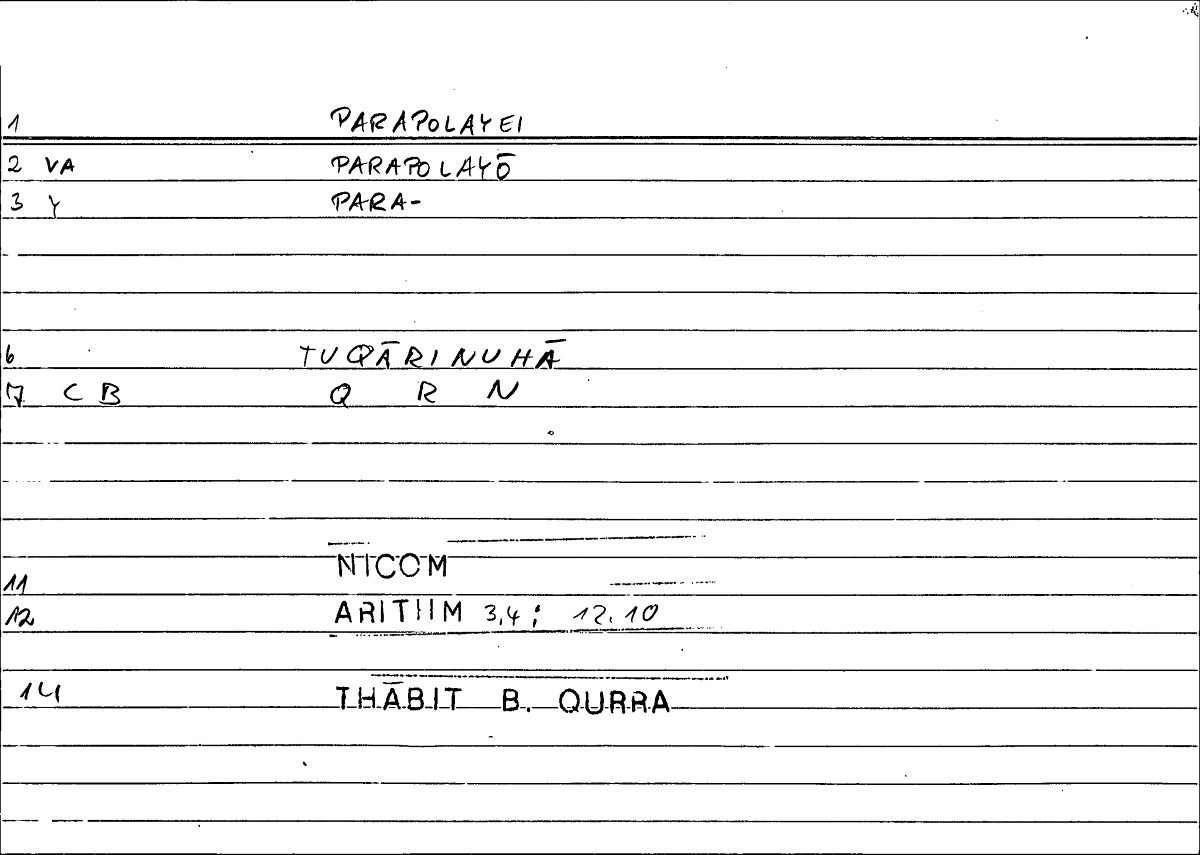 1 PARAPOLAYEI
2 VA PARAPOLAYŌ
3 Y PARA-
6 TUQĀRINUHĀ
7 C B Q R N
11 NICOM
12 ARITHM 3,4; 12.10
14 THĀBIT B. QURRA